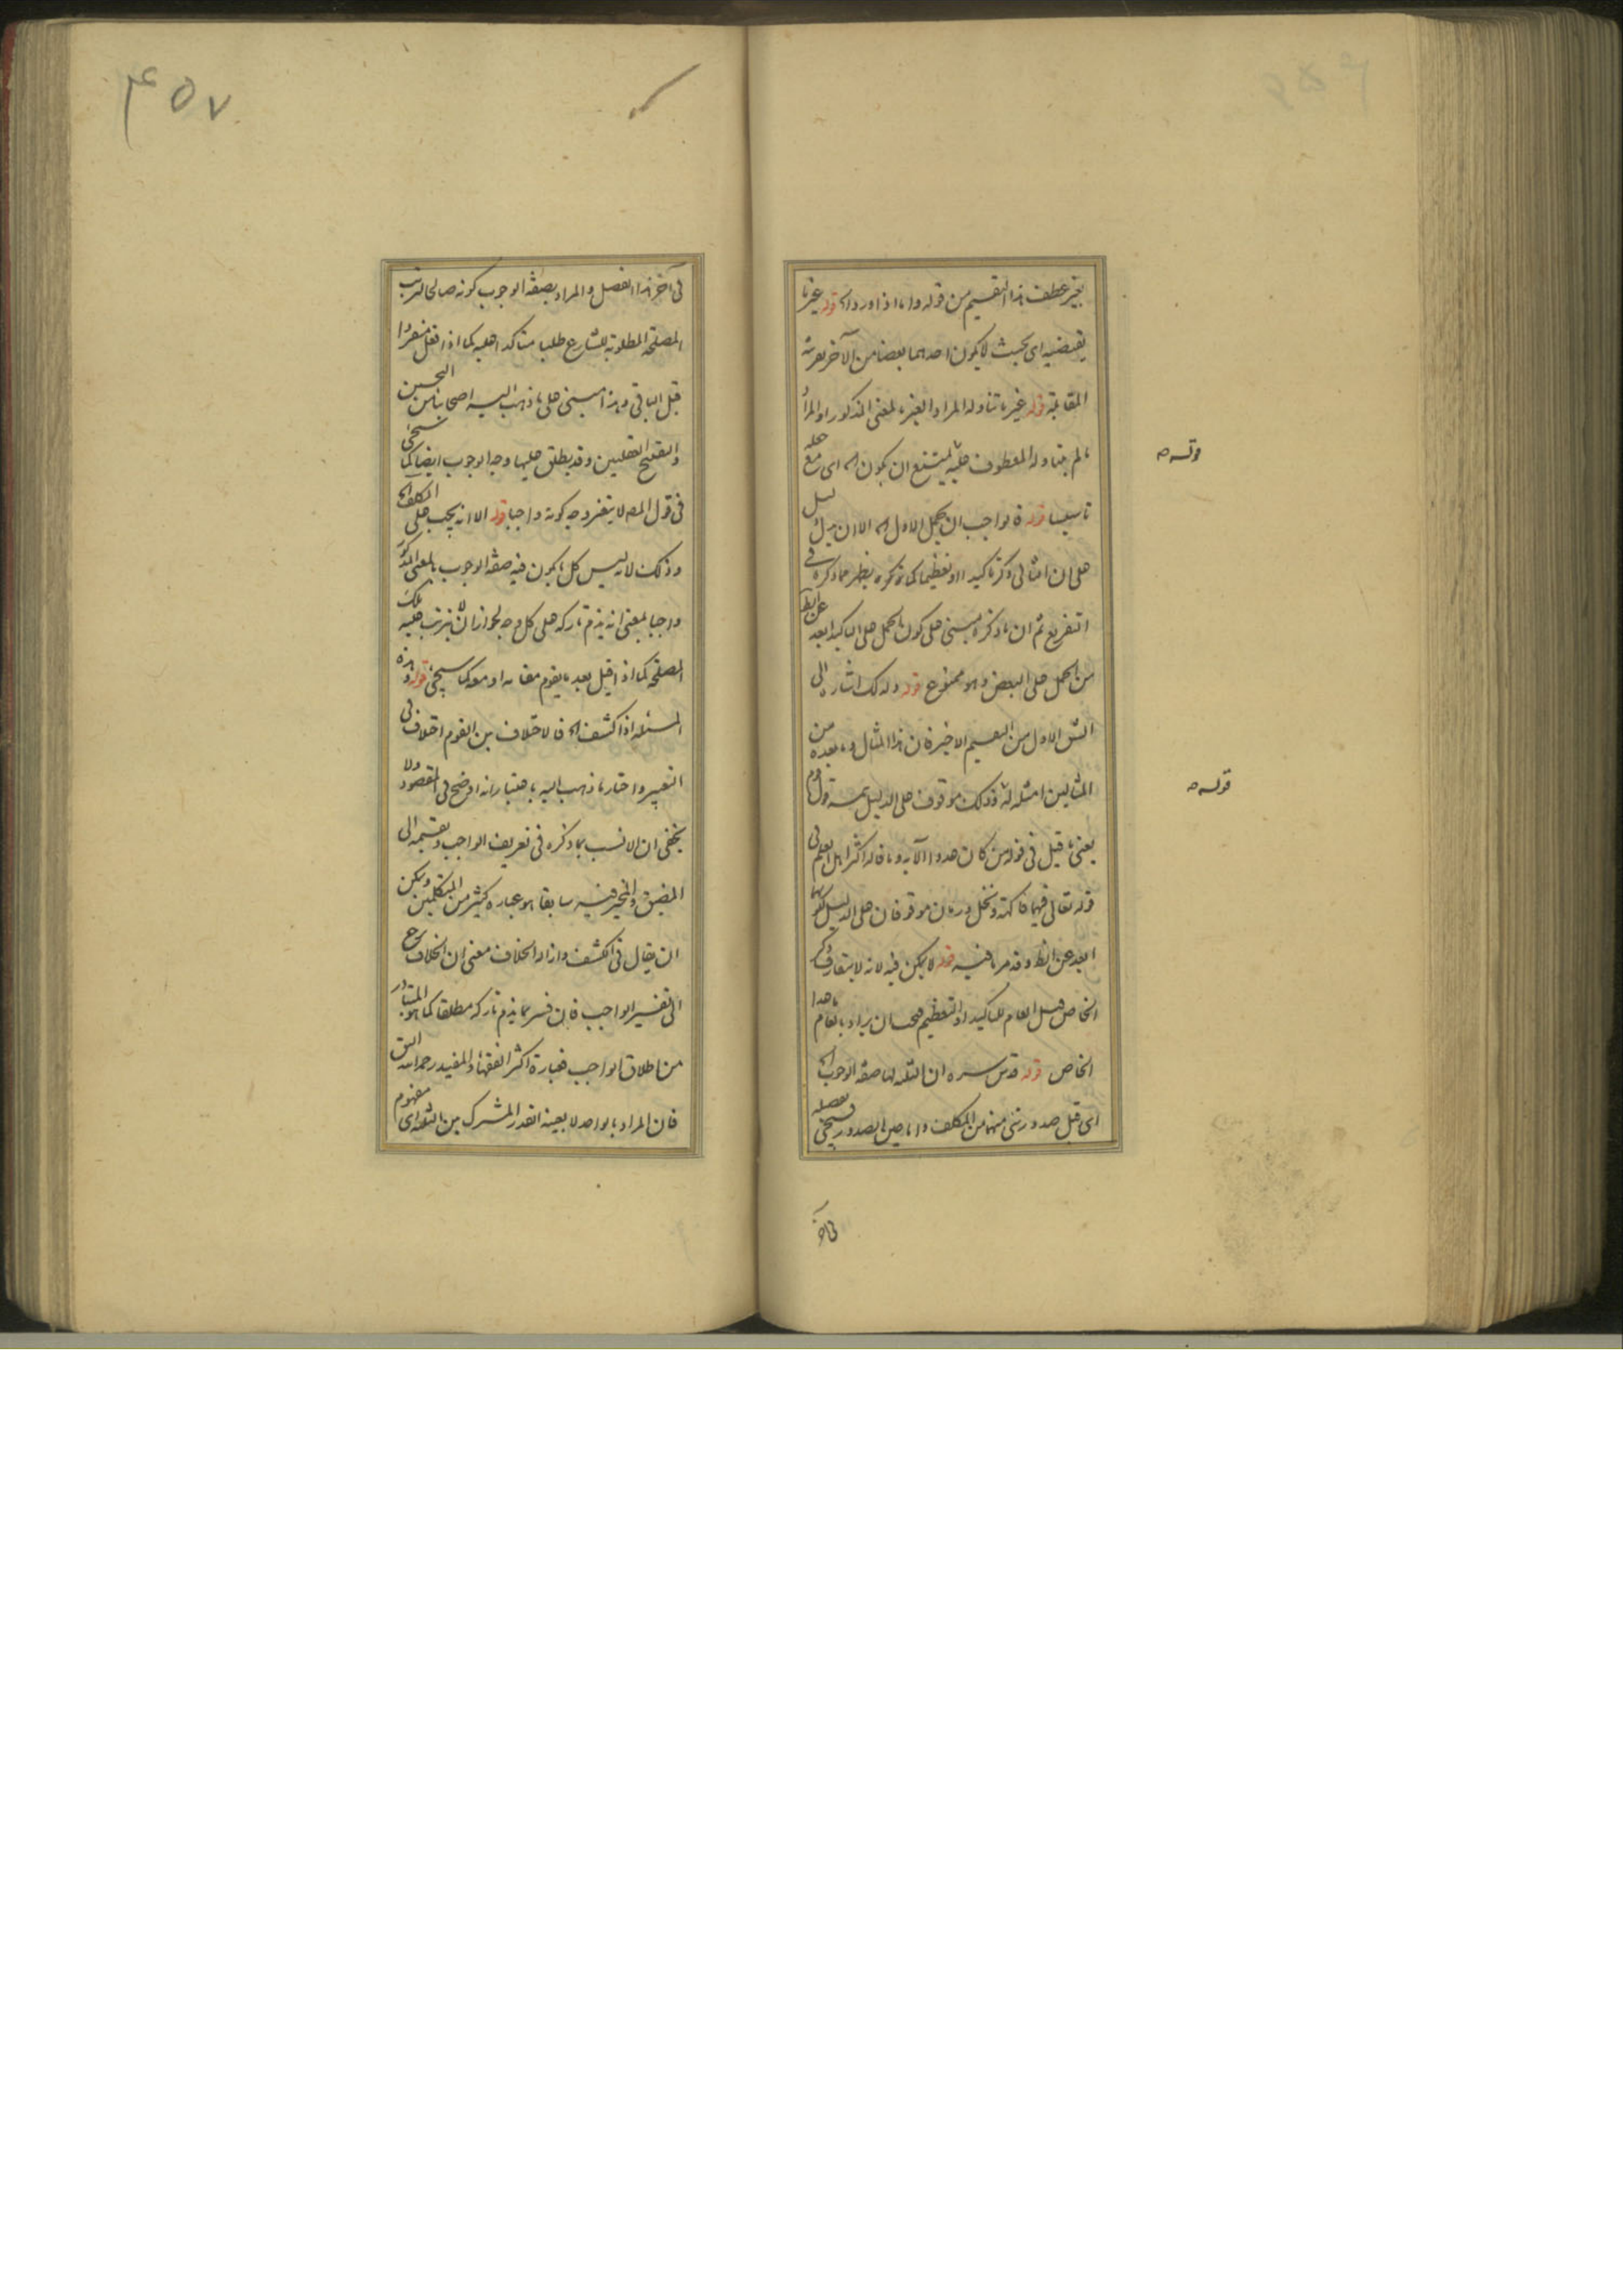 بغير عطف هذا التقسيم من قوله واما اذا ورد الخ قوله غير ما
يقتضيه اى بحيث لا يكون احدهما بعضا من الآخر بقرينة
المقابلة قوله غير ما تناوله المراد بالغير بالمعنى المذكور او المراد
ما لم يتناوله المعطوف عليه يمتنع ان يكون الخ اى مع حمله
تاسيسا قوله فالواجب ان يحمل الاول الخ الا ان يدل دليل
على ان الثانى ذكر تاكيدا او تعظيما كما ذكره يظهر مما ذكره فى
التفريع ثم ان ما ذكره مبنى على كون الحمل على التاكيد ابعد عن الظ
من الحمل على البعض وهو ممنوع قوله وذلك اشاره الى
الشق الاول من التقسيم الاخير فان هذا المثال وما بعده من
المثالين امثلة له فذلك موقوف على الدليل
يعنى ما قيل فى قوله من كان عدوا الآيه وما قاله اكثر اهل العلم فى
قوله تعالى فيهما فاكهة ونخل ورمان موقوفان على الدليل لكونهما
ابعد عن الظ وقد مر ما فيه قوله لا يمكن فيه لانه لا يتعارف ذكر
الخاص قبل العام للتاكيد او التعظيم فحسان يراد بالعام ما عدا
الخاص قوله قدس سره ان الثلثه لها صفة الوجوب الخ
اى قبل صدور شئ منها من المكلف واما حين الصدور فسيجئ تفصيله
فى آخر
قوله ص
قوله ص
۴۵۷
فى آخر هذا الفصل والمراد بصفة الوجوب كونه صالحا لترتب
المصلحة المطلوبة للشارع طلبا متاكدا عليه كما اذا فعل منفردا
قبل الباقى وهذا مبنى على ما ذهب اليه اصحابنا من التحسين
والتقبيح العقليين وقد يطلق عليها وجه الوجوب ايضا كما سيجئ
فى قول المص لا يتغير وجه كونه واجبا قوله الا انه يجب على المكلف الخ
وذلك لانه ليس كل ما يكون فيه صفة الوجوب بالمعنى المذكور
واجبا بمعنى انه يذم تاركه على كل وجه لجواز ان لا يترتب عليه تلك
المصلحة كما اذا قيل بعد ما يقوم مقامه او معه كما سيجئ قوله وهذه
المسئله اذا كشف الخ فالاختلاف بين القوم اختلاف فى
التعبير واختار ما ذهب اليه باعتبار انه اوضح فى المقصود ولا
يخفى ان الانسب بما ذكره فى تعريف الواجب وتقسيمه الى
المضيق والمخير فيه سابقا هو عباره كثير من المتكلمين ويمكن
ان يقال فى الكشف وازاد الخلاف معنى ان الخلاف يرجع
الى تفسير الواجب فان فسر بما يذم تاركه مطلقا كما هو المتبادر
من اطلاق الواجب فعبارة اكثر الفقهاء والمفيد رحمه الله اليق
فان المراد بالواحد لا بعينه القدر المشترك بين الثلثه اى مفهوم